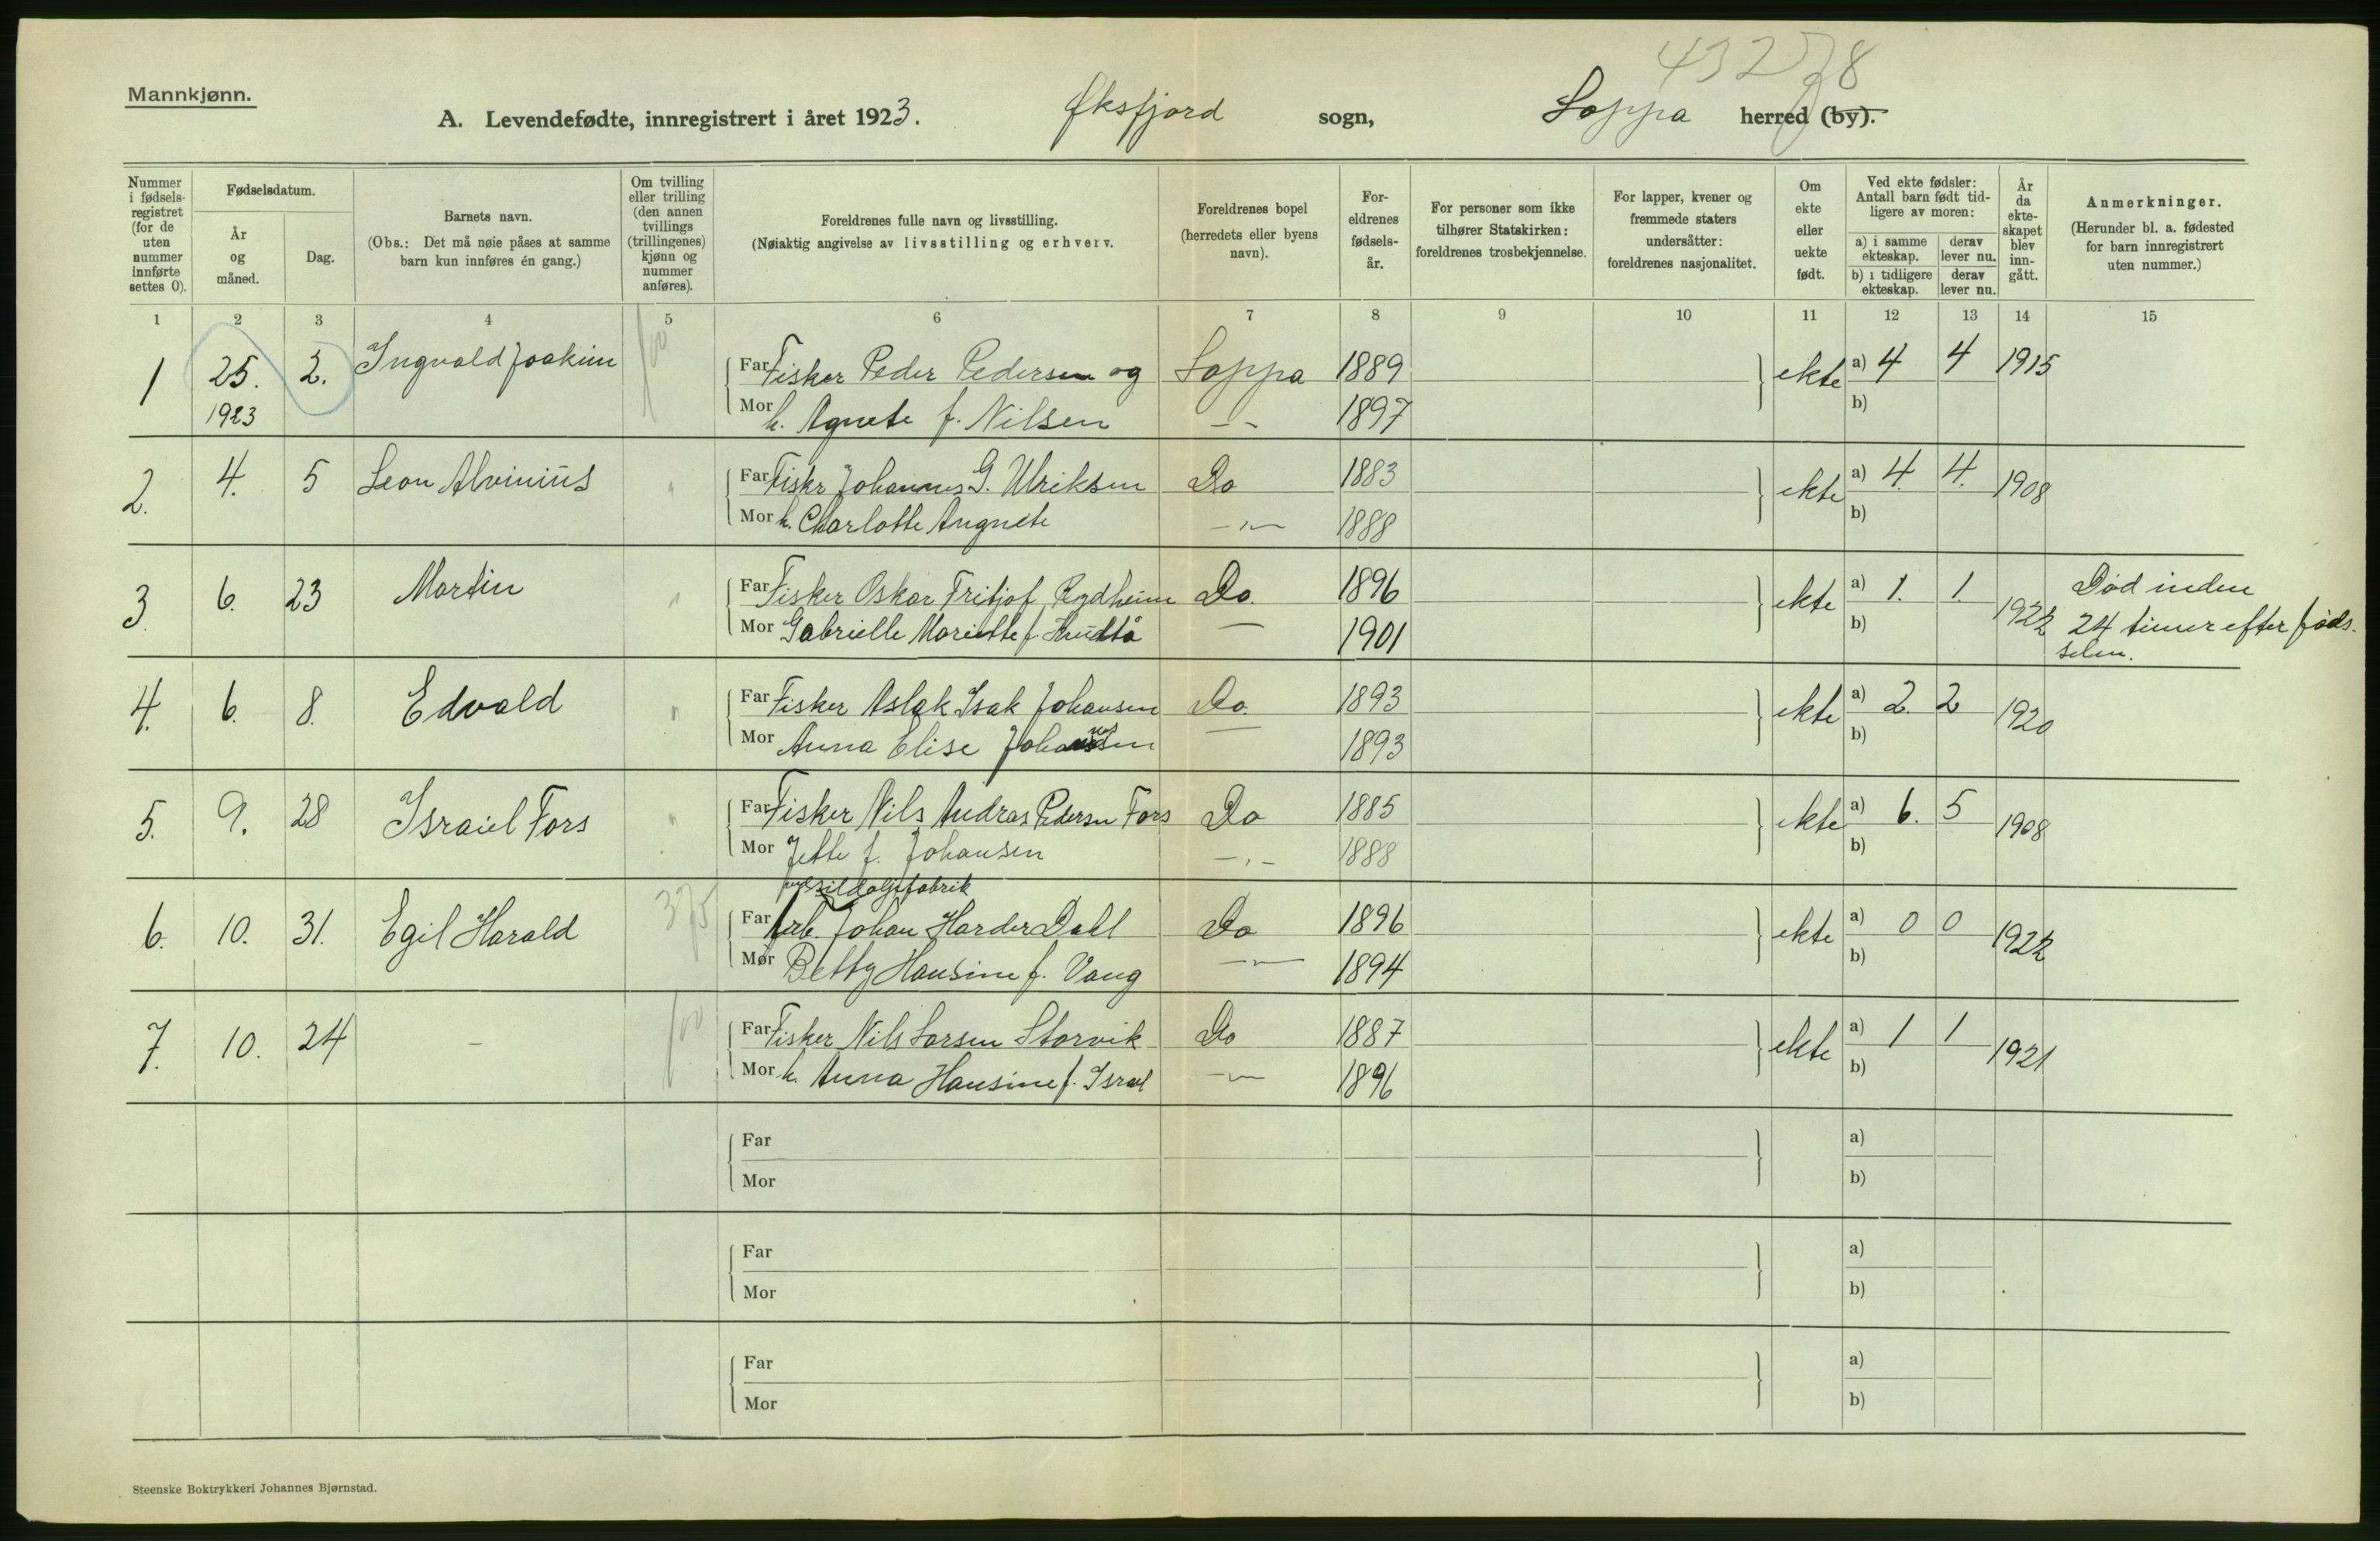 43278
Mannkjønn.
A. Levendefødte, innregistrert i året 1923. Øksfjord sogn, Loppa herred (by).
Nummer i fødselsregistret (for de uten nummer innførte settes 0).
Fødselsdatum.
År og måned.
Dag.
Barnets navn.
(Obs.: Det må nøie påses at samme barn kun innføres én gang.)
Om tvilling eller trilling (den annen tvillings (trillingenes) kjønn og nummer anføres).
Foreldrenes fulle navn og livsstilling.
(Nøiaktig angivelse av livsstilling og erhverv.
Foreldrenes bopel (herredets eller byens navn).
Foreldrenes fødselsår.
For personer som ikke tilhører Statskirken: foreldrenes trosbekjennelse.
For lapper, kvener og fremmede staters undersåtter: foreldrenes nasjonalitet.
Om ekte eller uekte født.
Ved ekte fødsler: Antall barn født tidligere av moren:
a) i samme ekteskap. derav lever nu.
b) i tidligere ekteskap. derav lever nu.
År da ekteskapet blev inngått.
Anmerkninger.
(Herunder bl. a. fødested for barn innregistrert uten nummer.)
1 2 3 4 5 6 7 8 9 10 11 12 13 14 15
1 25. 2. Ingvald Joakim 100 Far Fisker Peder Pedersen og Loppa 1889 ekte a) 4 4 1915
1923 Mor h. Agnete f. Nilsen -"- 1897 b)
2. 4. 5 Leon Alvinius " Far Fiskr Johannes G. Ulriksen Do 1883 ekte a) 4. 4. 1908
Mor h. Charlotte Angnete -"- 1888 b)
3 6. 23 Martin " Far Fisker Oskar Fritjof Rydheim Do. 1896 ekte a) 1. 1. 1922 Død inden
Mor Gabrielle Mariette f. — 1901 b) 24 timer efter føds-
selen.
4. 6. 8. Edvald " Far Fisker Aslak Isak Johansen Do. 1893 ekte a) 2. 2 1920
Mor Anna Elise — 1893 b)
5. 9. 28 Israiel Fors " Far Fisker Nils Andras Pedersen Fors Do 1885 ekte a) 6. 5 1908
Mor Jette f. Johansen -"- 1888 b)
ved sildoljefabrik
6. 10. 31. Egil Harald 375 Far Arb. Johan Harder Dahl Do 1896 ekte a) 0 0 1922
Mor Betty Hansine f. Vang -"- 1894 b)
7. 10. 24 - 100 Far Fisker Nils Larsen Storvik Do 1887 ekte a) 1 1 1921
Mor h. Anna Hansine f. Israel -"- 1896 b)
Far a)
Mor b)
Far a)
Mor b)
Far a)
Mor b)
Steenske Boktrykkeri Johannes Bjørnstad.